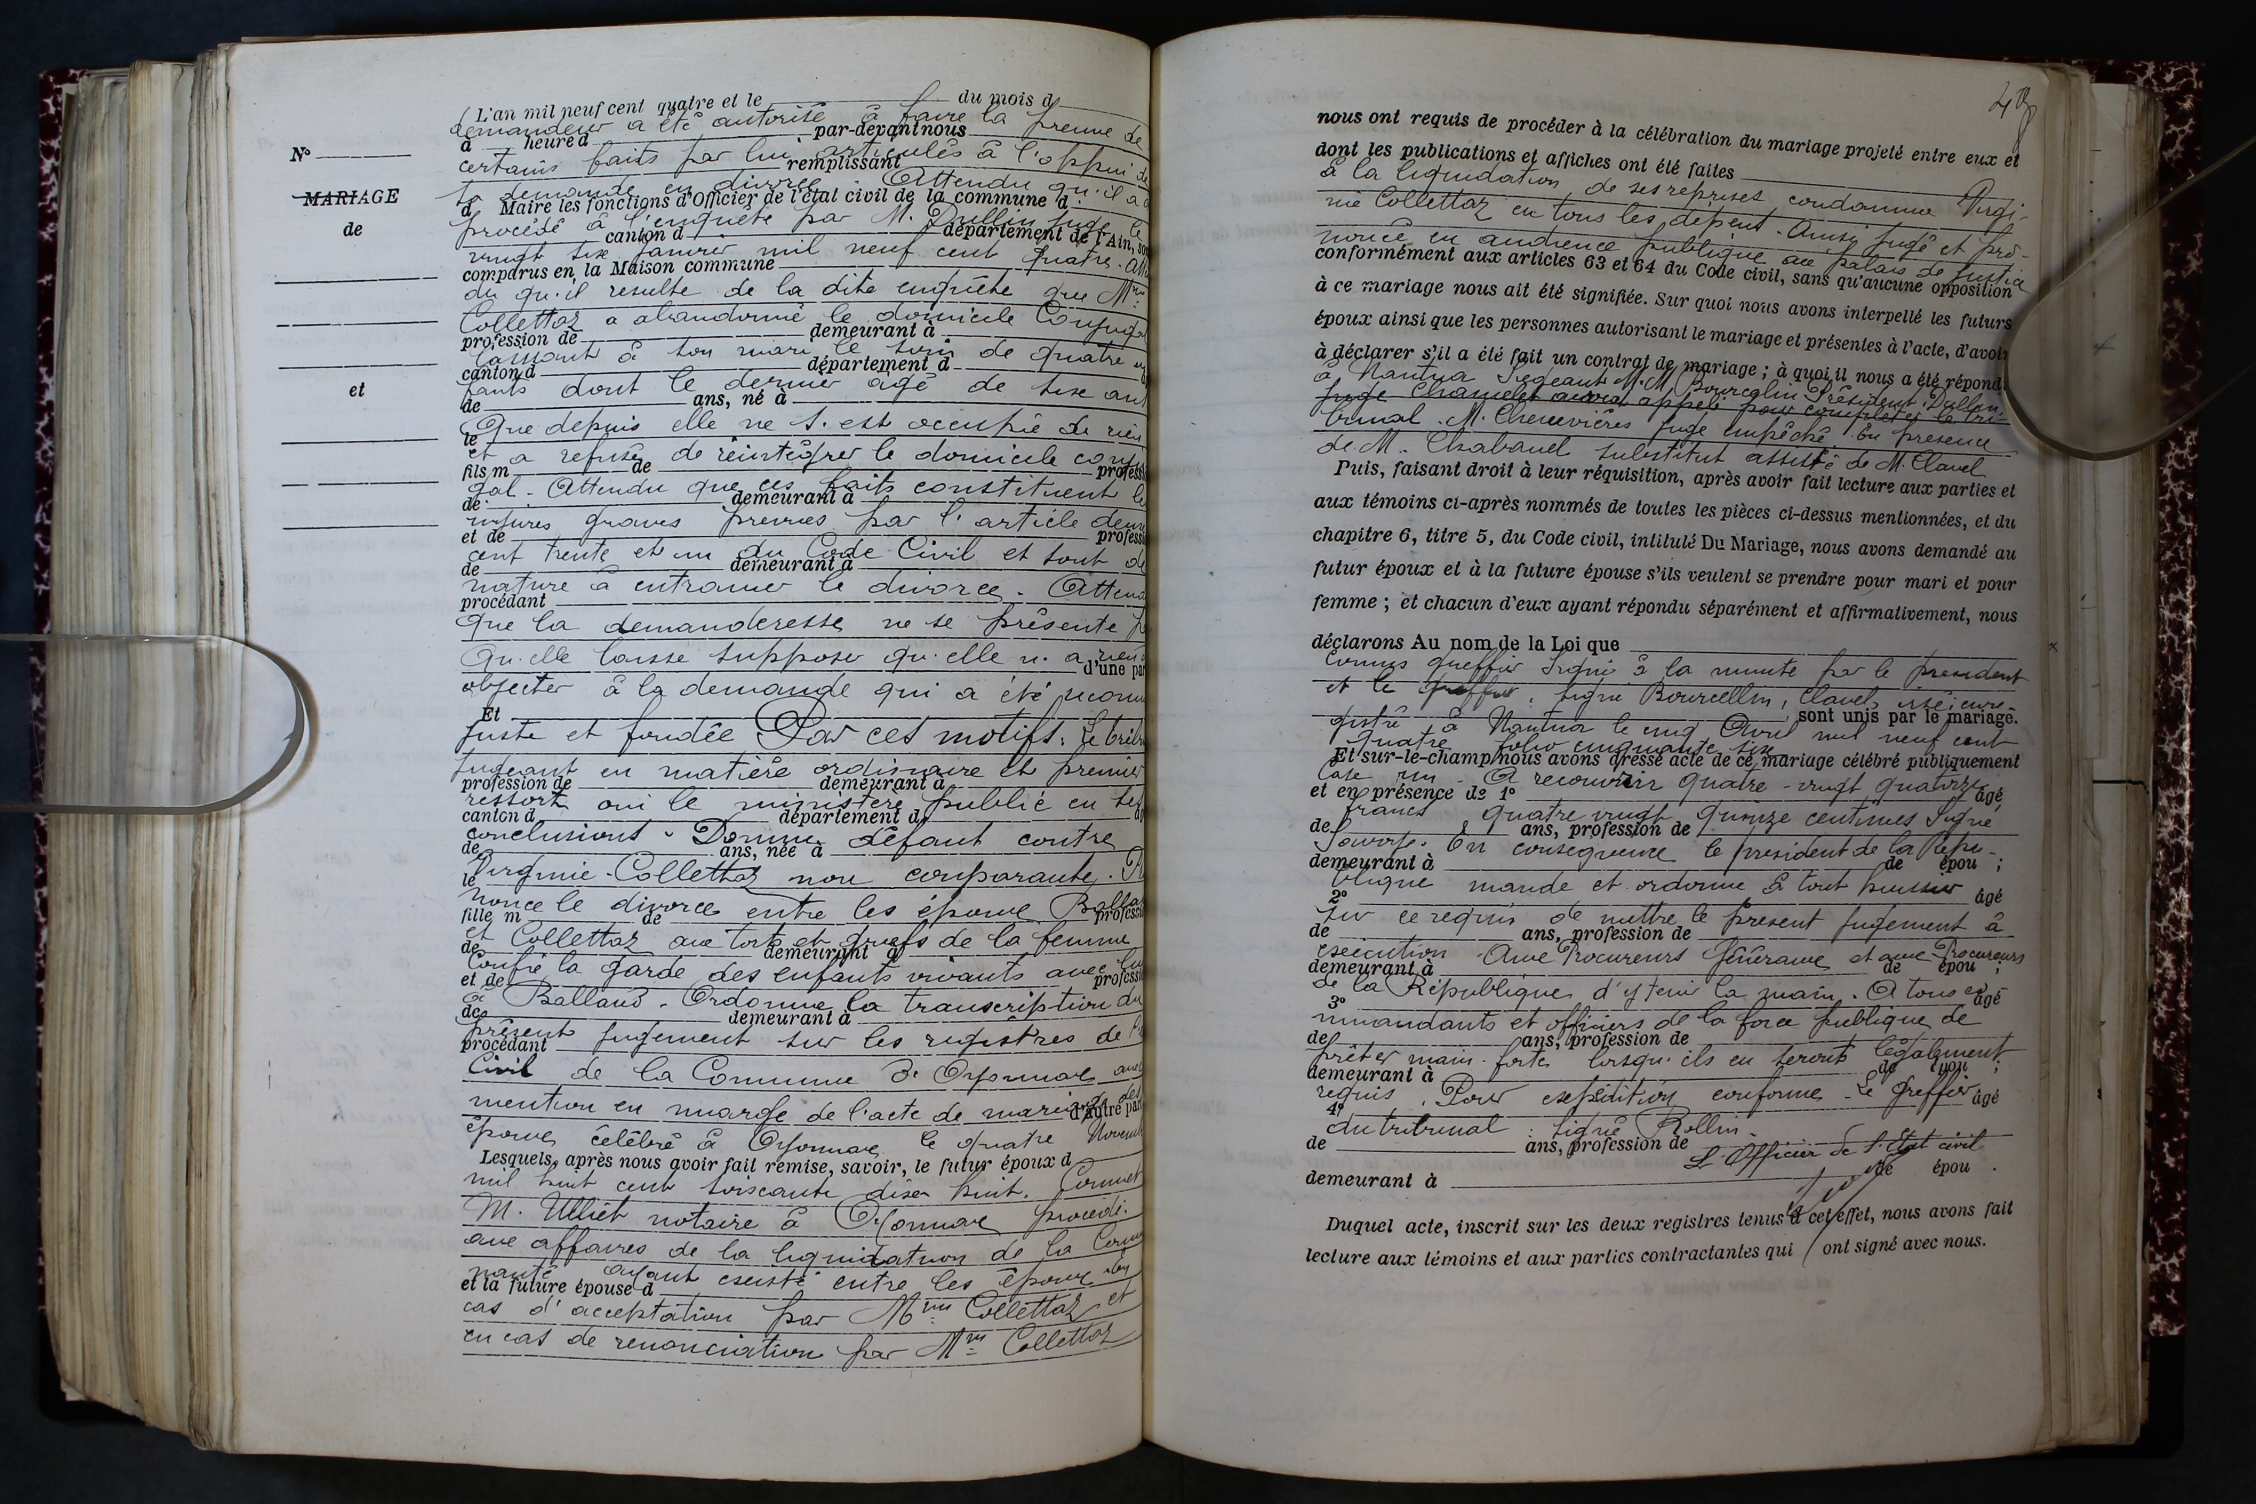 L'an mil neuf cent quatre et le du mois d
demandeur a été autorisé à faire la preuve de
à heure d par-devant nous
certains faits par lui articulés à l'appui de
remplissant
sa demande en divorce. Attendu qu'il a
N°
MARIAGE
d Maire les fonctions d'Officier de l'état civil de la commune d
procédé à l'enquête par M. Dullin juge le
de
canton d département de l'Ain, son
vingt six janvier mil neuf cent quatre. Att
comparus en la Maison commune
du qu'il resulte de la dite enquête que Mme
Collettaz a abandonné le domicile Conjugal
profession de demeurant à
laissant à son mari le soin de quatre en
canton d département d
et
fants dont le dernier âgé de six ans
de ans, né à
Que depuis elle ne s'est occupée de rien
le
et a refusé de réintégrer le domicile conju
fils m de professi
gal. Attendu que ces faits constituent le
de demeurant à
injures graves prevues par l'article deux
et de professi
cent trente et un du Code Civil et sont de
de demeurant à
nature à entrainer le divorce. Attend
procédant
Que la demanderesse ne se présente p
Qu'elle laisse supposer qu'elle n'a rien
d'une par
objecter à la demande qui a été reconn
Et
juste et fondée Par ces motifs. Le trib
jugeant en matière ordinaire et premier
profession de demeurant à
ressort oui le ministère public en ses
canton d département d
conclusions. Donne défaut contre
de ans, née à
Virginie Collettaz non comparante. P
le
nonce le divorce entre les époux Balla
fille m de professi
et Collettaz aux torts et griefs de la femme
de demeurant à
Confie la garde des enfants vivants avec lu
et de professi
à Balland. Ordonne la transcription du
de demeurant à
présent jugement sur les registres de l'é
procédant
Civil de la Commune d'Oyonnax avec
mention en marge de l'acte de mariage des
d'autre part
époux célébré à Oyonnax le quatre Novemb
Lesquels, après nous avoir fait remise, savoir, le futur époux d
mil huit cent soixante dix huit. Commet
M. Ulliet notaire à Oyonnax procéder
aux affaires de la liquidation de la Comm
nauté ayant existé entre les époux en
et la future épouse d
cas d'acceptation par Mme Collettaz et
en cas de renonciation par Mme Collettaz
nous ont requis de procéder à la célébration du mariage projeté entre eux et
dont les publications et affiches ont été faites
à la liquidation de ses reprises, condamne Virgi-
nie Collettaz en tous les depens. Ainsi jugé et pro-
noncé en audience publique au palais de Justice
conformément aux articles 63 et 64 du Code civil, sans qu'aucune opposition
à ce mariage nous ait été signifiée. Sur quoi nous avons interpellé les futurs
époux ainsi que les personnes autorisant le mariage et présentes à l'acte, d'avoir
à déclarer s'il a été fait un contrat de mariage ; à quoi il nous a été répond
à Nantua Siégeant M.M. Bourcelin Président, Dullin
juge Chamelet avoué appelé pour compléter le tri-
bunal. M. Chenevières juge empêché. En présence
de M. Chabaud substitut assisté de M. Clavel
Puis, faisant droit à leur réquisition, après avoir fait lecture aux parties et
aux témoins ci-après nommés de toutes les pièces ci-dessus mentionnées, et du
chapitre 6, titre 5, du Code civil, intitulé Du Mariage, nous avons demandé au
futur époux et à la future épouse s'ils veulent se prendre pour mari et pour
femme ; et chacun d'eux ayant répondu séparément et affirmativement, nous
déclarons Au nom de la Loi que
Commis greffier Signé à la minute par le president
et le greffier, signé Bourcellin, Clavel, enre-
sont unis par le mariage.
gistré à Nantua le cinq Avril mil neuf cent
quatre folio cinquante six
Et sur-le-champ nous avons dressé acte de ce mariage célébré publiquement
Case un. A recouvrir quatre-vingt quatorze
et en présence de 1° âgé
francs quatre vingt quinze centimes Signé
de ans, profession de
En consequence le président de la Répu-
demeurant à de épou ;
blique mande et ordonne à tout huissier
2° âgé
sur ce requis de mettre le present jugement à
de ans, profession de
exécution. Aux Procureurs Généraux et aux Procureurs
demeurant à de épou ;
de la République d'y tenir la main. A tous co-
3° âgé
mmandants et officiers de la force publique de
de ans, profession de
prêter main-forte lorsqu'ils en seront légalement
demeurant à de épou ;
requis. Pour expédition conforme. Le greffier
4° âgé
du tribunal : signé Rollin.
de ans, profession de
L'Officier de l'Etat civil
demeurant à de épou .
Duquel acte, inscrit sur les deux registres tenus à cet effet, nous avons fait
lecture aux témoins et aux parties contractantes qui ont signé avec nous.